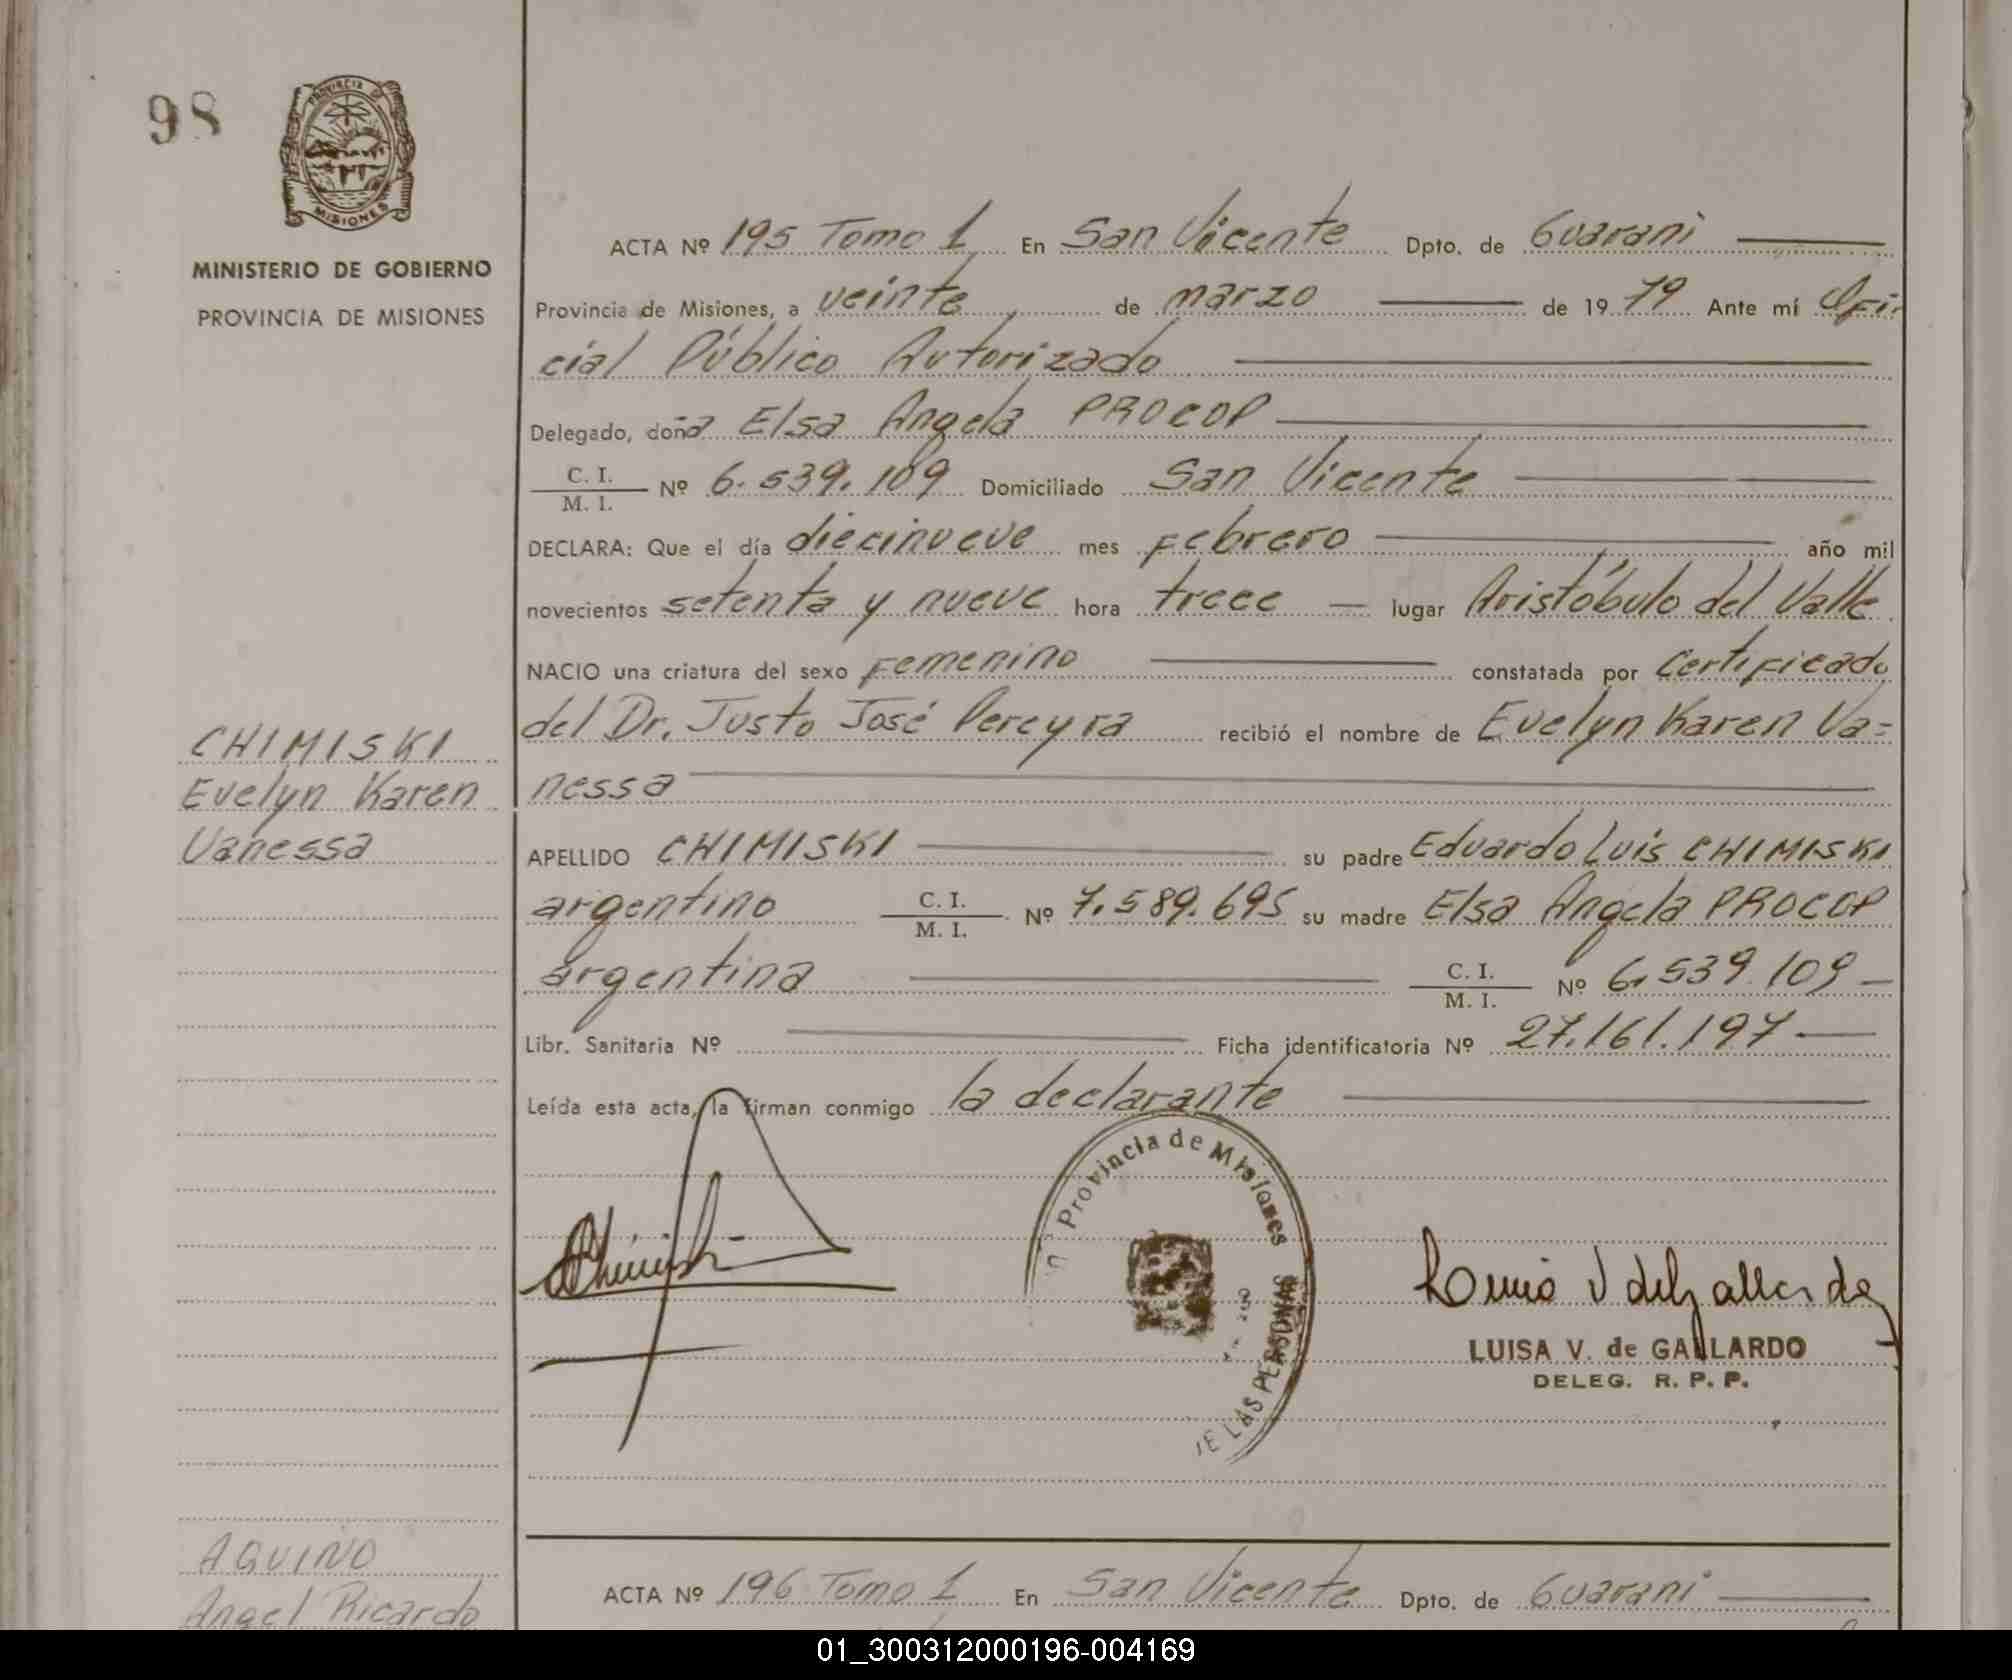 98
PROVINCIA DE
MISIONES
MINISTERIO DE GOBIERNO
PROVINCIA DE MISIONES
ACTA Nº 195 Tomo 1 En San Vicente Dpto. de Guaraní
Provincia de Misiones, a veinte de marzo de 1979 Ante mí Ofi-
cial Público Autorizado
Delegado, doña Elsa Angela PROCOP
C. I.
M. I. Nº 6.539.109 Domiciliado San Vicente
DECLARA: Que el día diecinueve mes Febrero año mil
novecientos setenta y nueve hora trece lugar Aristóbulo del Valle
NACIO una criatura del sexo Femenino constatada por Certificado
del Dr. Justo José Pereyra recibió el nombre de Evelyn Karen Va=
nessa
CHIMISKI
Evelyn Karen
Vanessa
APELLIDO CHIMISKI su padre Eduardo Luis CHIMISKI
argentino C. I.
M. I. Nº 7.589.695 su madre Elsa Angela PROCOP
argentina C. I.
M. I. Nº 6.539.109
Libr. Sanitaria Nº Ficha identificatoria Nº 27.161.197
Leída esta acta, la firman conmigo la declarante
Provincia de Misiones
DE LAS PERSONAS
LUISA V. de GALLARDO
DELEG. R. P. P.
AQUINO
Angel Ricardo
ACTA Nº 196 Tomo 1 En San Vicente Dpto. de Guaraní
01_300312000196-004169